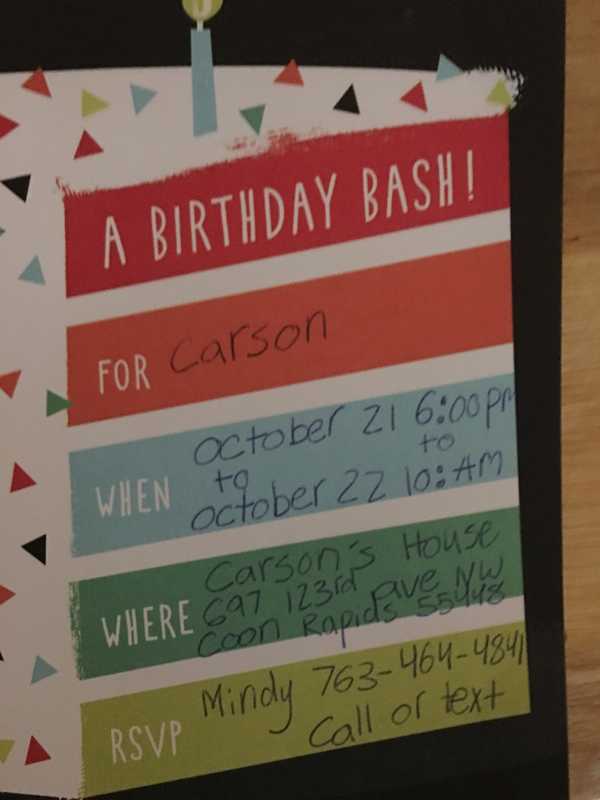 A BIRTHDAY BASH!
FOR Carson
WHEN october 21 6:00pm
to to
october 22 10:AM
WHERE Carson's House
697 123rd ave NW
Coon Rapids 55448
RSVP Mindy 763-464-4841
Call or text